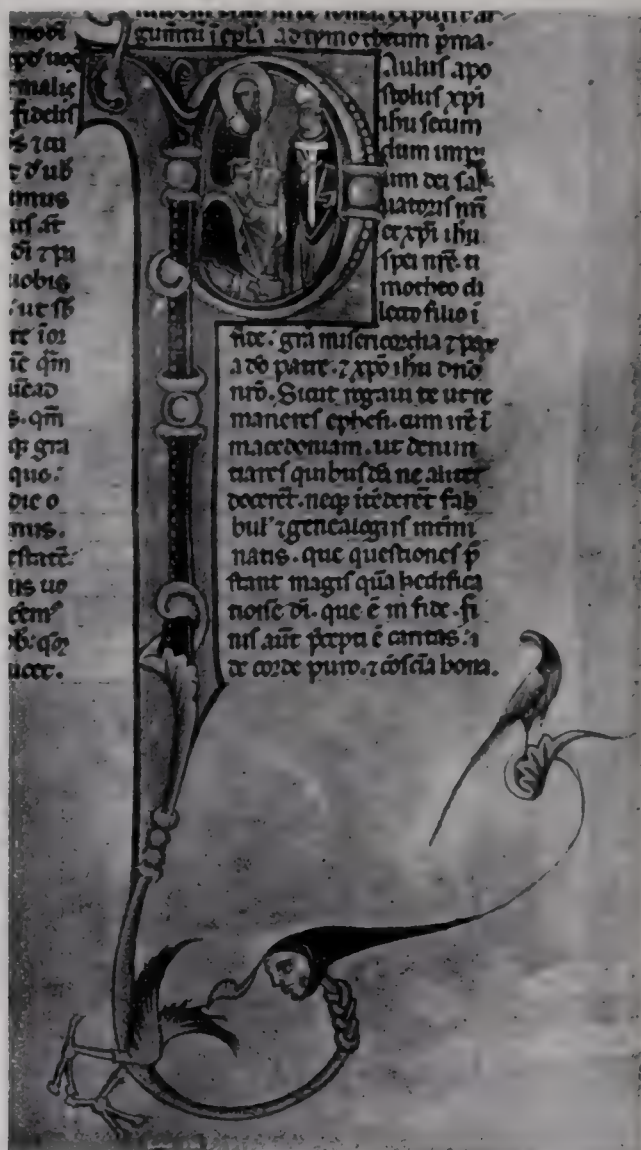 modi
malis
fidelis
imus
di ⁊ pa
uobis
qm̄
s. qm̄
die o
mus.
us uo
gum̄tū ī epl̄a ad tymotheum pͥma.
Aulus apo
stolus xp̄i
ihu secun
dum imp̄i
um dei sal
uatoris nr̄i
et xp̄i ihu
spei nr̄e. ti
motheo di
lecto filio ī
fide. grā misericordia ⁊ pax
a dō patre. ⁊ xp̄o ihu dnō
nr̄o. Sicut rogaui te ut re
maneres ephesi. cum irē ī
macedoniam. ut denun
tiares quibusdā ne aliter
docerēt. neq; ītēderēt fab
bul' ⁊ genealogiis intmi
natis. que questiones p̄
stant magis quā hedifica
tiōse di. que ē in fide. fi
nis aūt p̄cepti ē caritas:
de corde puro. ⁊ cōscīa bona.